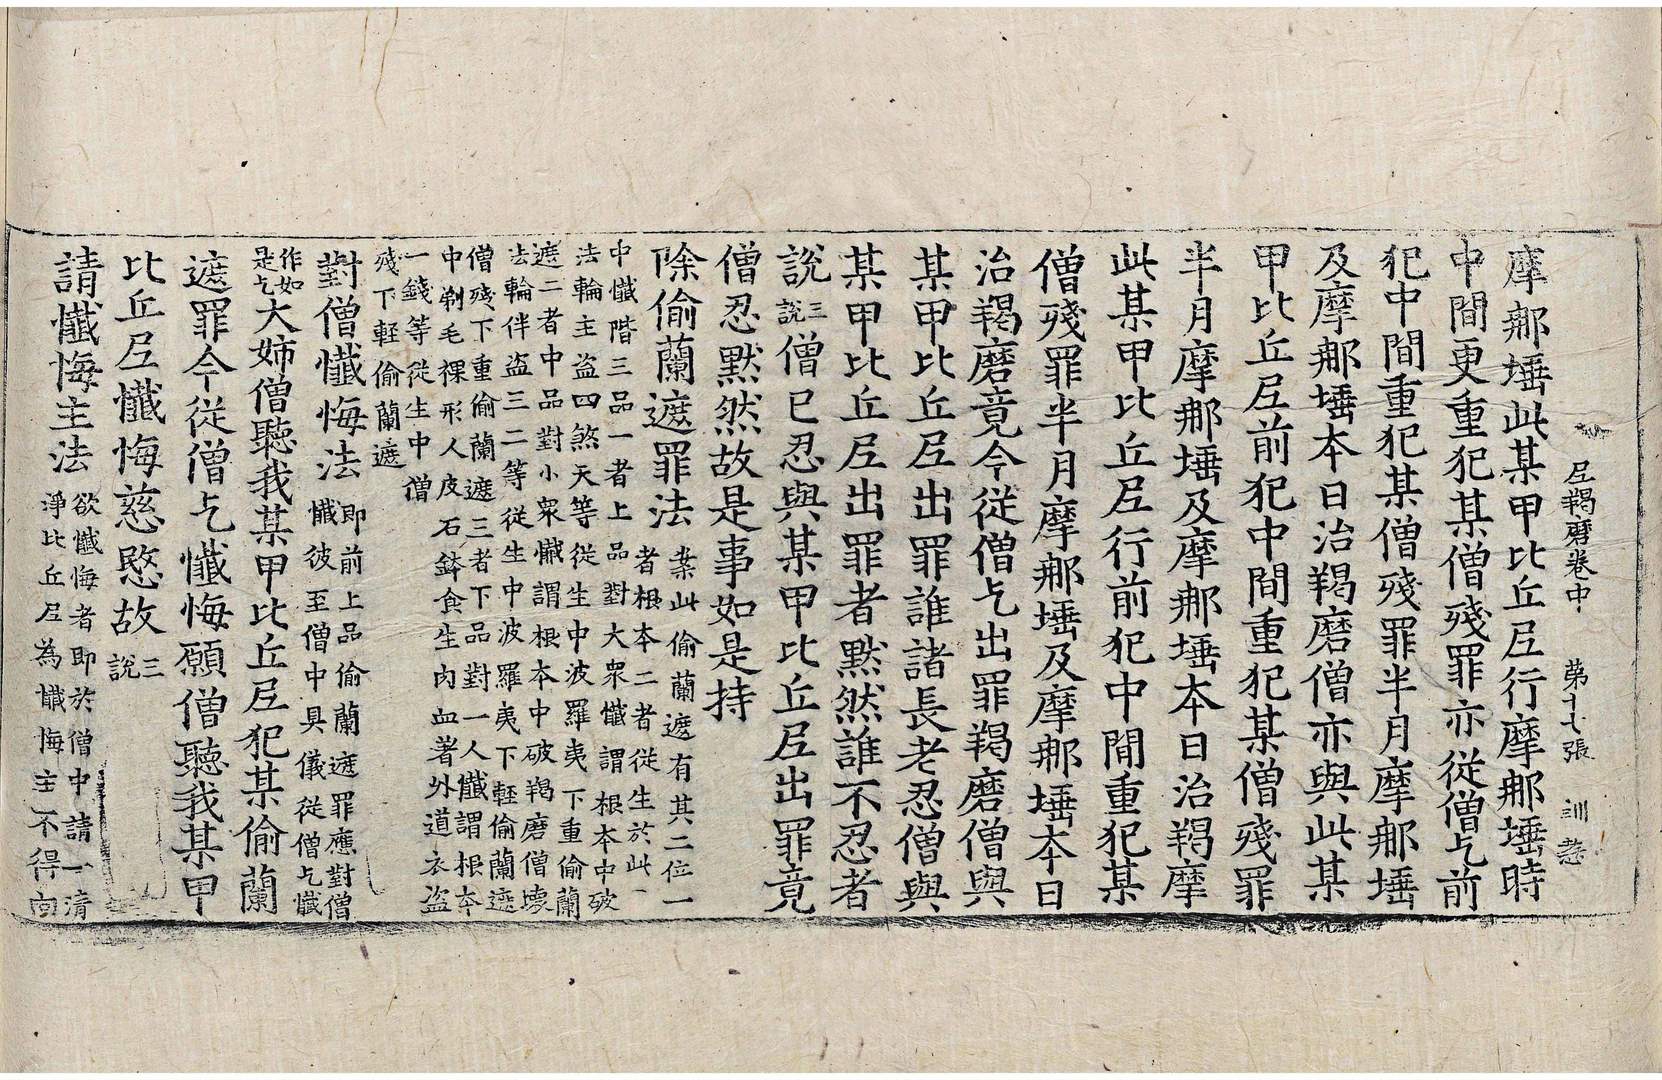 尼羯磨卷中 第十七張 訓
摩那埵此某甲比丘尼行摩那埵時
中間更重犯某僧殘罪亦從僧乞前
犯中間重犯某僧殘罪半月摩那埵
及摩那埵本日治羯磨僧亦與此某
甲比丘尼前犯中間重犯某僧殘罪
半月摩那埵及摩那埵本日治羯摩
此某甲比丘尼行前犯中間重犯某
僧殘罪半月摩那埵及摩那埵本日
治羯磨竟今從僧乞出罪羯磨僧與
某甲比丘尼出罪誰諸長老忍僧與
某甲比丘尼出罪者默然誰不忍者
說三說僧已忍與某甲比丘尼出罪竟
僧忍默然故是事如是持
除偷蘭遮罪法案此偷蘭遮有其二位一
者根本二者從生於此一
中懺階三品一者上品對大衆懺謂根本中破
法輪主盜四煞天等從生中波羅夷下重偷蘭
遮二者中品對小衆懺謂根本中破羯磨僧壞
法輪伴盜三二等從生中波羅夷下輕偷蘭遮
僧殘下重偷蘭遮三者下品對一人懺謂根本
中剃毛裸形人皮石鉢食生肉血著外道衣盜
一錢等從生中僧
殘下輕偷蘭遮
對僧懺悔法即前上品偷蘭遮罪應對僧
懺彼至僧中具儀從僧乞懺
作如是乞大姉僧聽我某甲比丘尼犯某偷蘭
遮罪今從僧乞懺悔願僧聽我某甲
比丘尼懺悔慈愍故三說
請懺悔主法欲懺悔者即於僧中請一清
淨比丘尼為懺悔主不得向